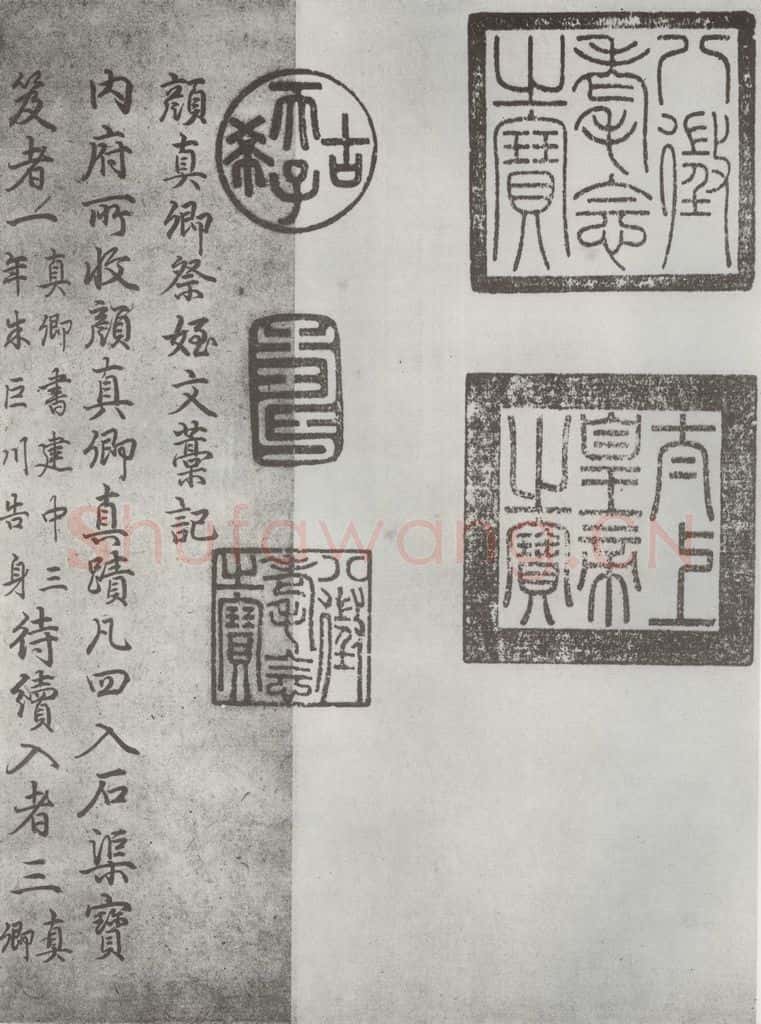 八徵耄念之寶
太上皇帝之寶
古希天子
壽
八徵耄念之寶
顔真卿祭姪文藁記
内府所收顔真卿真蹟凡四入石渠寶
笈者一真卿書建中三年朱巨川告身待續入者三真卿
Shufawang.CN